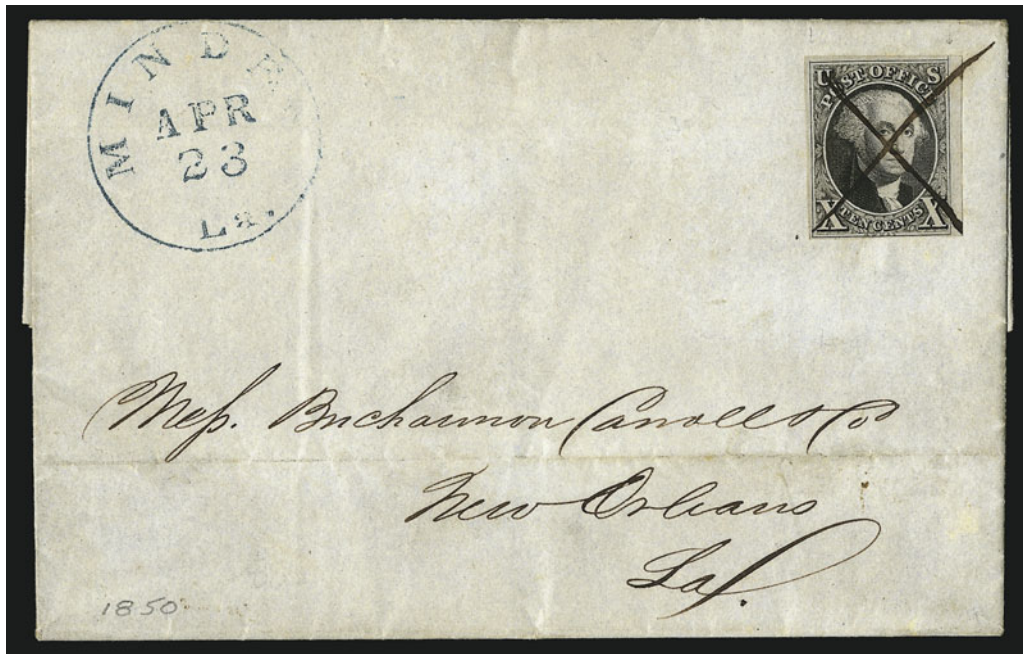 MINDE
APR
23
La.
U S
POST OFFICE
X TEN CENTS X
Mess. Buchannon Carroll & Co
New Orleans
La.
1850